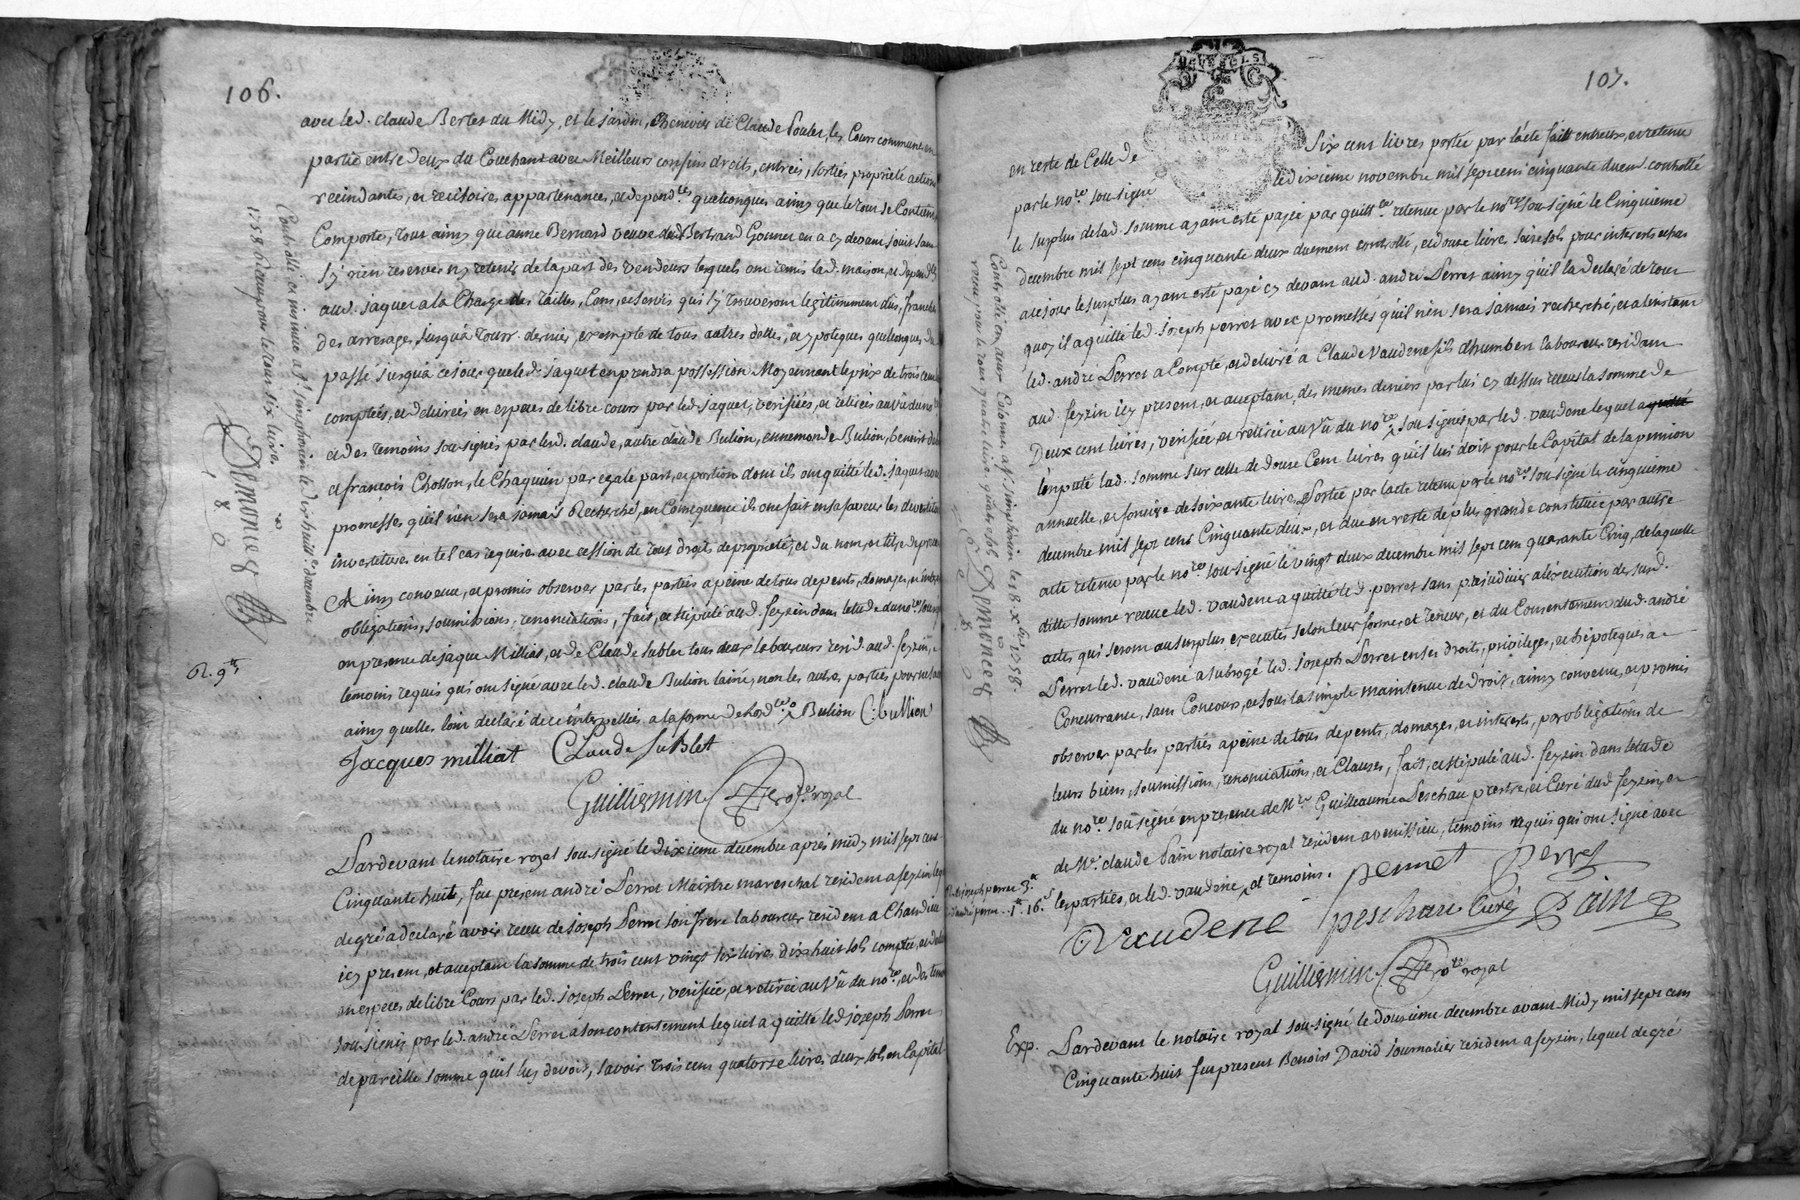 106.
avec led. claude Berlet du Midy, et le jardin, chenevier de Claude Poulet, les Cours commune en
partie entre deux du Couchant avec Meilleurs confins droits, entrées, sorties propriété actions
recindantes, et recisoires, appartenances, et depend.ces quelconques ainsy que le tout se Contient
Comporte, tout ainsy que anne Bernard veuve de Bertrand Gonnet en a cy devant jouit sans
s'y rien reserver ny retenir de la part des vendeurs lesquels ont remis lad. maison, et depend.ces
aud. jaquet a la Charge des tailles, Cens, et servis qui s'y trouveront legitimement dus, franche
des arrerages jusqu'a tourr. dernier, exempte de tous autres dettes, et ypoteques quelconques du
passé jusqu'a ce jour que led. jaquet en prendra possession Moyennant le prix de trois cent
comptées, et delivrées en especes de libre cours par led. jaquet, verifiées, et retirées au vû du no.re
et des temoins sousignés par led. claude, autre claude Bulion, ennemonde Bulion, benoit
et francois Chosson, le Chaquun par egale part, et portion dont ils ont quitté led. jaquet avec
promesses qu'il n'en sera jamais Recherché, en Consequence ils ont fait en sa faveur les devestitures
investitures en tel cas requises avec cession de tout droits de propriété, et du nom, et titre de precaire
Ainsy convenu, et promis observer par les parties a peine de tous depents, domages, et interets
obligations, soumissions, renonciations, fait, et stipulé aud. feyzin dans l'etude du no.re sousigné
en presence de jaque Milliat, et de Claude Sublet tous deux laboureurs resid. aud. feyzin,
temoins requis qui ont signé avec led. claude Bulion l'ainé, non les autres parties pour ne savoir
ainsy quelles l'ont declaré de ce interpellées a la forme de l'ord.ce Bulion C: bullion
Jacques milliat Claude suBlet
Guilliermin no.re royal
Controllé et insinué a s.t simphorien le dix huit.e decembre
1758 Reçu pour le tout six livres
Demonet
R. 9 tt
Pardevant le notaire royal sousigné le dixieme decembre apres midy mil sept cent
Cinquante huit, fut present andré Perret Maistre mareschal resident a feyzin lequel
de gré a declaré avoir receu de joseph Perret son frere laboureur resident a Chandieu
icy present, et acceptant la somme de trois cent vingt six livres dix huit sols comptée, et delivrée
en especes de libre Cours par led. joseph Perret, verifiée, et retirée au Vû du no.re, et des temoins
sousignés par led. andré Perret a son contentement lequel a quitté led joseph Perret
de pareille somme qu'il luy devoit, savoir trois cent quatorze livres deux sols en Capital
107.
en reste de Celle de six cent livres portée par l'acte fait entreux, et retenu
par le no.re sousigné le dixieme novembre mil sept cent cinquante duem. controllé
le surplus de lad. somme ayant esté payée par quitt.ce retenue par le no.re sousigné le Cinquieme
decembre mil sept cent cinquante deux duement controllé, et douze livres seize sols pour interets echus
a ce jour le surplus ayant esté payé cy devant aud. andré Perret ainsy qu'il la declaré de tout
quoy il a quitté led. joseph perret avec promesses qu'il n'en sera jamais recherché, et a l'instant
led. andré Perret a Compté, et delivré a Claude Vaudene fils d'humbert laboureur resident
aud. feyzin icy present, et acceptant, des memes deniers par lui cy dessus receus la somme de
Deux cent livres, verifiée, et retirée au Vû du no.re sousigné par led. vaudene lequel a
imputé lad. somme sur celle de douze Cent livres qu'il lui doit pour le Capital de la pension
annuelle, et fonciere de soixante livres Portée par l'acte retenu par le no.re sousigné le cinquieme
decembre mil sept cent Cinquante deux, et due en reste de plus grande constituée par autre
acte retenu par le no.re sousigné le vingt deux decembre mil sept cent quarante Cinq, de laquelle
ditte somme receue led. vaudene a quitté led. perret sans prejudicier a l'execution des susd.
actes qui seront au surplus executés selon leur forme, et teneur, et du Consentement dud. andré
Perret led. vaudene a subrogé led. joseph Perret en ses droits, privileges, et hipoteques a
Concurrance, sans Concours, et sous la simple maintenue de droit, ainsy convenu, et promis
observer par les parties a peine de tous depents, domages, et interests, par obligations de
leurs biens, soumissions, renonciations, et Clauses, fait, et stipulé aud. feyzin dans l'etude
du no.re sousigné en presence de M.re Guilleaume Peschau prestre, et Curé dud. feyzin, et
de M.e claude Pain notaire royal resident a venissieu, temoins requis qui ont signé avec
les parties, et led. vaudene, et temoins.
perret Perret
Vaudene peschau Curé Pain
Guilliermin no.re royal
Controllé en deux Colonnes a s.t simphorien le 18 xbre 1758.
receu pour le tout quatre livres quatre sols Demonet
R. de joseph perret 3 tt
d'andré perret 1 tt 16 s
Exp.
Pardevant le notaire royal sousigné le douzieme decembre avant Midy mil sept cent
Cinquante huit fut present Benoist David journalier resident a feyzin, lequel de gré